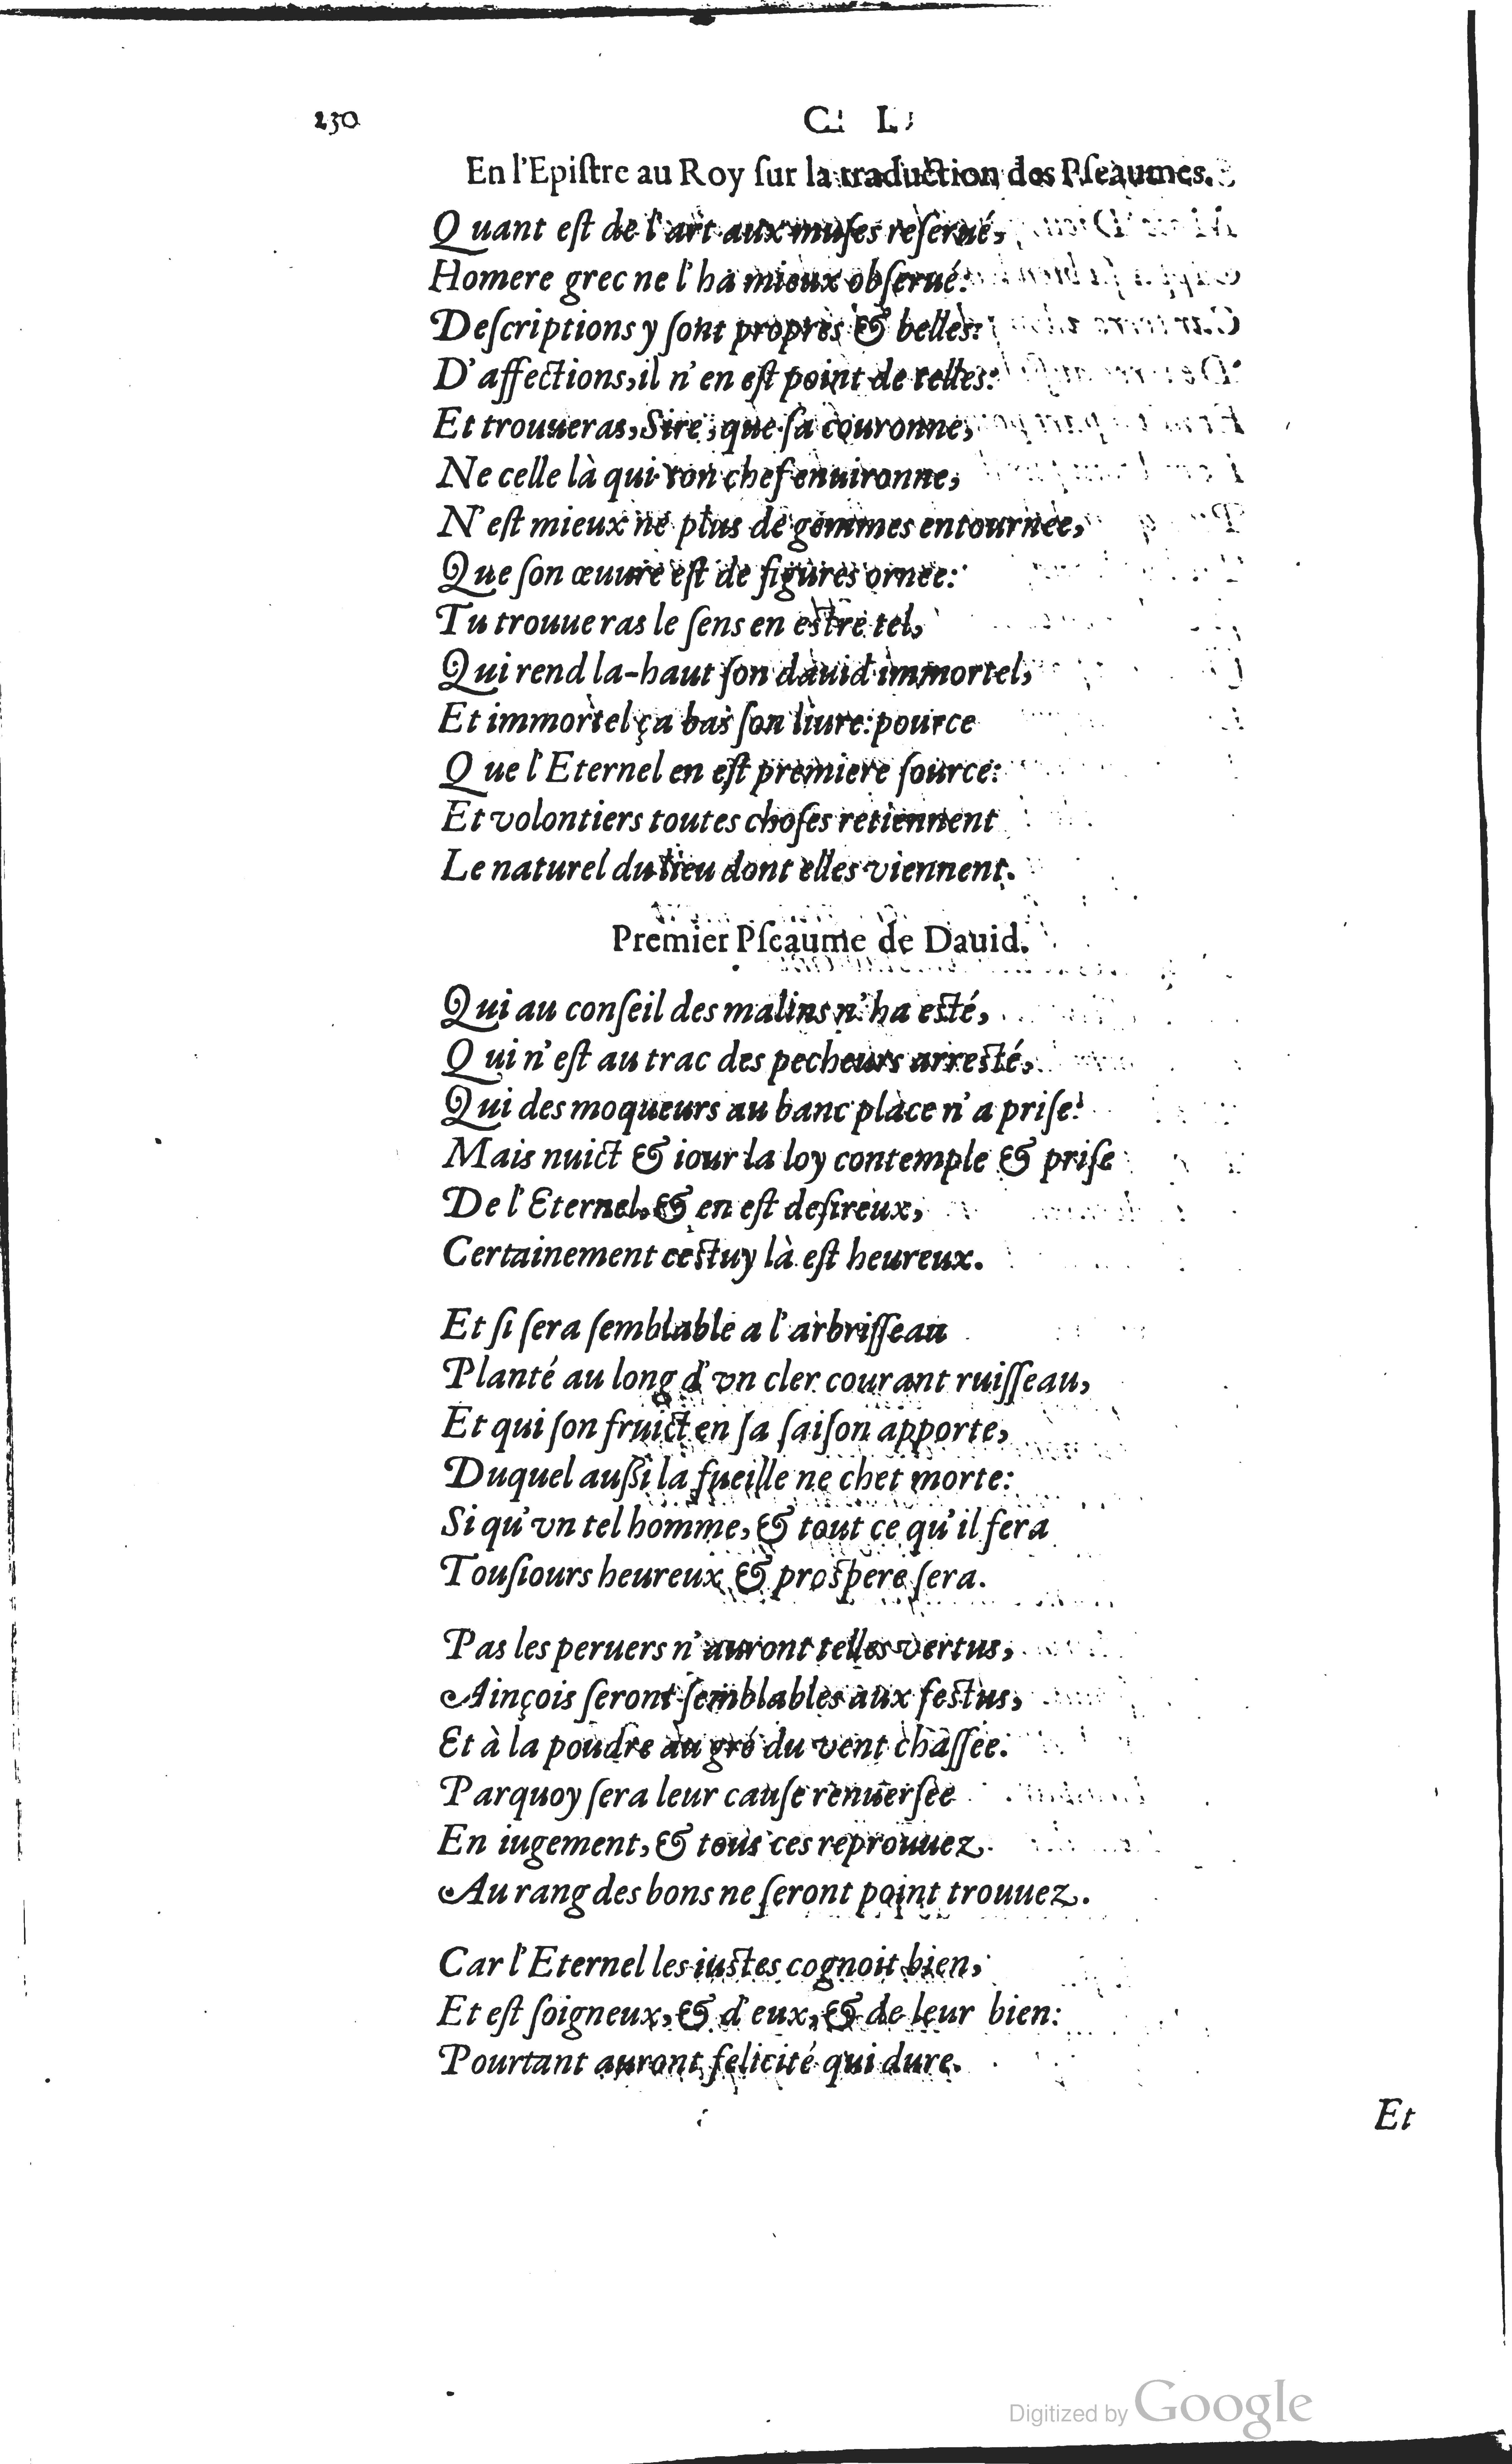 230 C L
En l'Epiſtre au Roy ſur la traduction des Pſeaumes.
Quant eſt de l'art aux muſes reſerué,
Homere grec ne l'ha mieux obſerué:
Deſcriptions y ſont propres & belles:
D'affections, il n'en eſt point de telles:
Et trouueras, Sire, que ſa couronne,
Ne celle là qui ton chef enuironne,
N'eſt mieux ne plus de gemmes entournée,
Que ſon œuure eſt de figures ornee:
Tu trouueras le ſens en eſtre tel,
Qui rend la-haut ſon dauid immortel,
Et immortel ça bas ſon liure: pource
Que l'Eternel en eſt premiere ſource:
Et volontiers toutes choſes retiennent
Le naturel du lieu dont elles viennent.
Premier Pſeaume de Dauid.
Qui au conſeil des malins n'ha eſté,
Qui n'eſt au trac des pecheurs arreſté,
Qui des moqueurs au banc place n'a priſe:
Mais nuict & iour la loy contemple & priſe
De l'Eternel, & en eſt deſireux,
Certainement ceſtuy là eſt heureux.
Et ſi ſera ſemblable a l'arbriſſeau
Planté au long d'vn cler courant ruiſſeau,
Et qui ſon fruict en ſa ſaiſon apporte,
Duquel auſſi la fueille ne chet morte:
Si qu'vn tel homme, & tout ce qu'il fera
Touſiours heureux & proſpere ſera.
Pas les peruers n'auront telles vertus,
Ainçois ſeront ſemblables aux feſtus,
Et à la poudre au gré du vent chaſſée:
Parquoy ſera leur cauſe renuerſée
En iugement, & tous ces reprouuez
Au rang des bons ne ſeront point trouuez.
Car l'Eternel les iuſtes cognoit bien,
Et eſt ſoigneux, & d'eux, & de leur bien:
Pourtant auront felicité qui dure.
Et
Digitized by Google